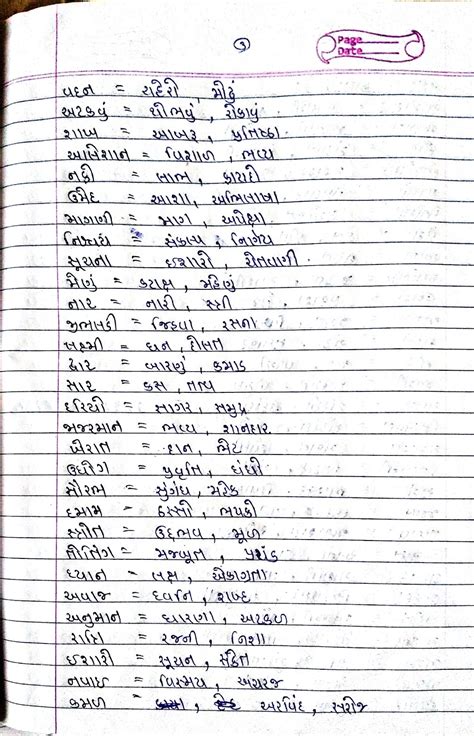 ૧
Page
Date
વદન = ચહેરો, મોઢું
અટકવું = થોભવું, રોકાવું
શાખ = આબરૂ, પ્રતિષ્ઠા
આલિશાન = વિશાળ, ભવ્ય
નફો = લાભ, ફાયદો
ઉમેદ = આશા, અભિલાષા
માગણી = માગ, અપેક્ષા
નિશ્ચય = સંકલ્પ, નિર્ણય
સૂચના = ઈશારો, ચેતવણી
મેણું = કટાક્ષ, મહેણું
નાર = નારી, સ્ત્રી
જીભલડી = જિહવા, રસના
લક્ષ્મી = ધન, દોલત
દ્વાર = બારણું, કમાડ
સાર = કસ, તત્વ
દરિયો = સાગર, સમુદ્ર
જાજરમાન = ભવ્ય, શાનદાર
ખેરાત = દાન, ભેટ
ઉદ્યોગ = પ્રવૃત્તિ, ધંધો
સૌરભ = સુગંધ, મહેક
દમામ = ઠસ્સો, ભપકો
સ્ત્રોત = ઉદ્દભવ, મૂળ
નીતિંગ = મજબૂત, પ્રચંડ
ધ્યાન = લક્ષ, એકાગ્રતા
અવાજ = ધ્વનિ, શબ્દ
અનુમાન = ધારણા, અટકળ
રાત્રિ = રજની, નિશા
ઈશારો = સૂચન, સંકેત
નવાઈ = વિસ્મય, અચરજ
કમળ = અરવિંદ, સરોજ